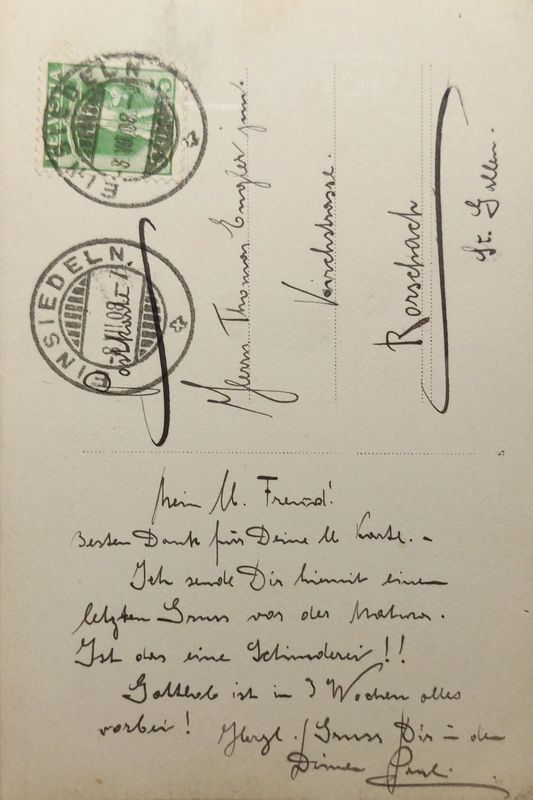 HELVETIA
5
EINSIEDELN
-8.VII.08.-7
EINSIEDELN
-8.VII.08.-7
Postkarte
Herrn Thomas Engler jun.
Kirchstrasse.
Rorschach
St. Gallen.
S
Mein ll. Freund!
Besten Dank für Deine ll Karte. -
Ich sende Dir hiemit einen
letzten Gruss vor der Matura.
Ist das eine Schinderei!!
Gottlob ist in 3 Wochen alles
vorbei! Herzl. Gruss Dir u den
Deinen